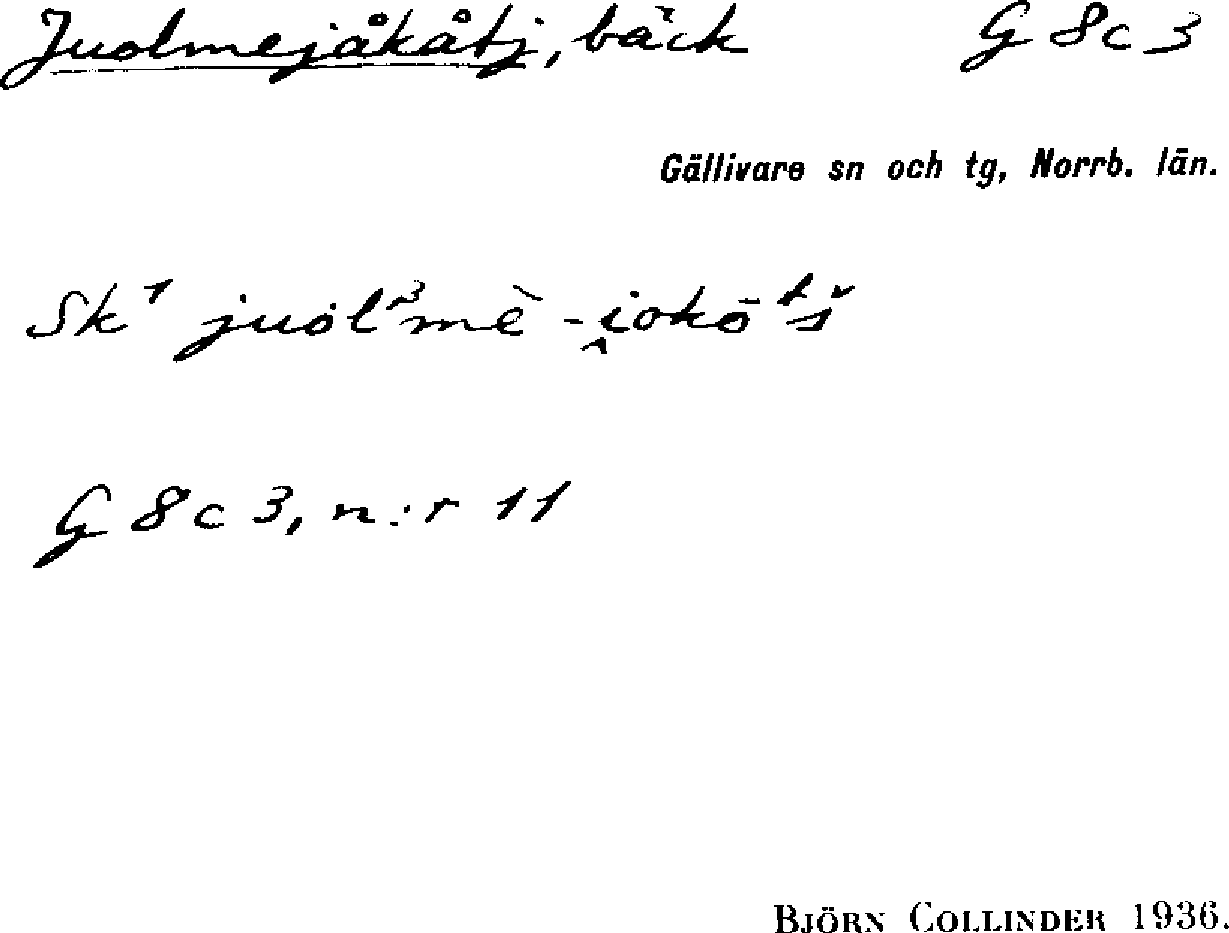 Juolmejåkåtj, bäck G 8c 3
Gällivare sn och tg, Norrb. län.
Sk¹ juȯl³mè -i̯okōᵗš
G 8 c 3, n:r 11
BJÖRN COLLINDER 1936.